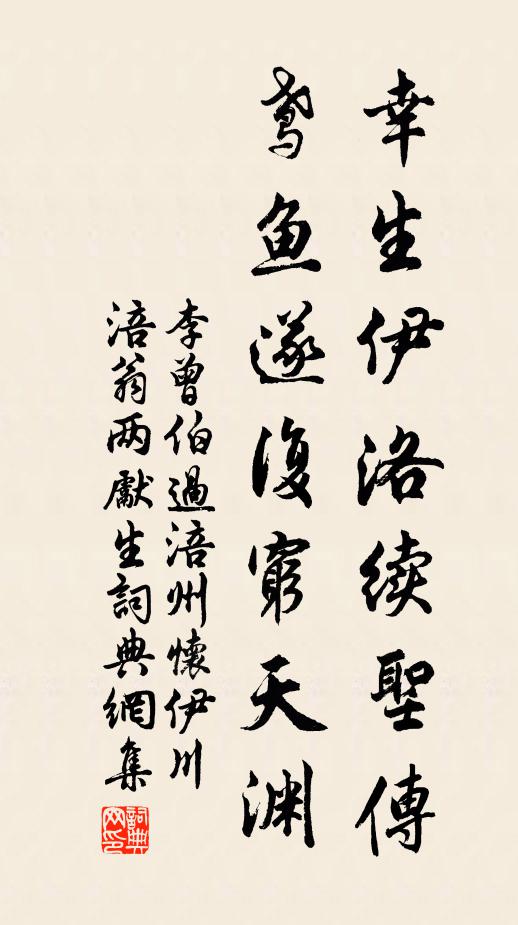 幸生伊洛续聖傳
鸢鱼遂復窮天渊
李曾伯過涪州懷伊川
涪翁两獻生詞典網集
詞典
网印